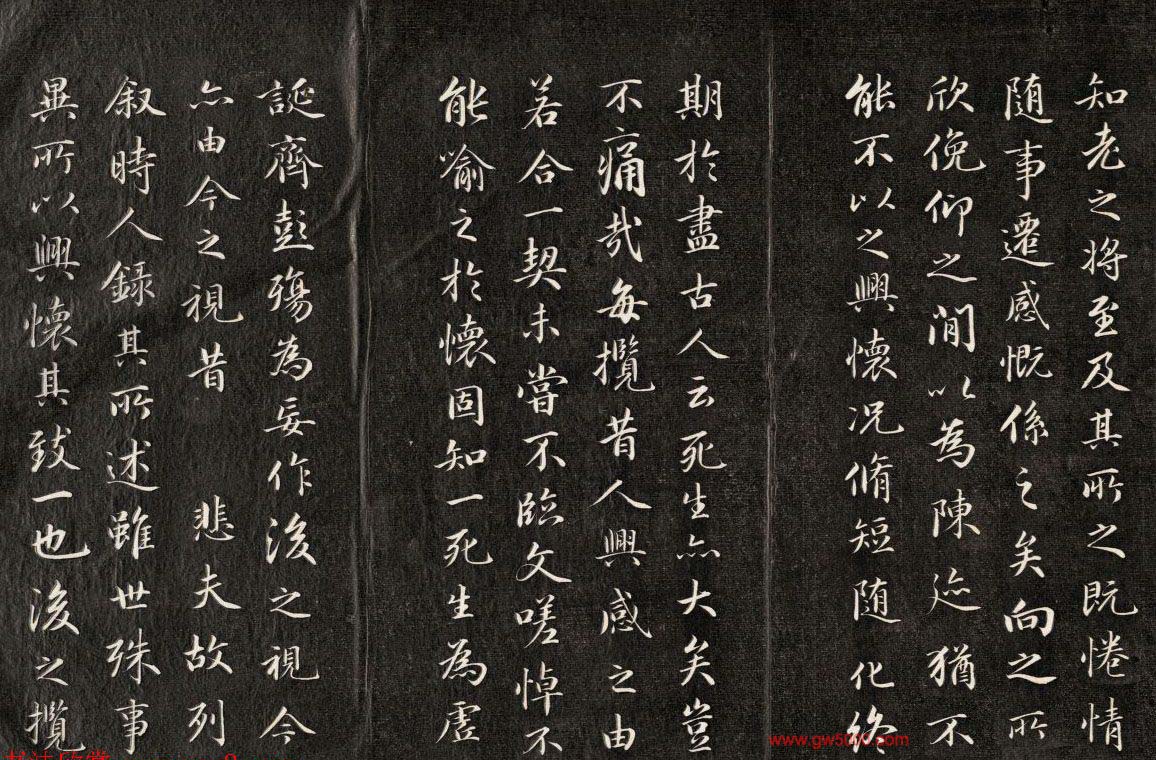 知老之将至及其所之既惓情
随事遷感慨係之矣向之所
欣俛仰之間以為陳迹猶不
能不以之興懷况脩短随化終
期於盡古人云死生亦大矣豈
不痛哉每攬昔人興感之由
若合一契未嘗不臨文嗟悼不
能喻之於懷固知一死生為虗
誕齊彭殤為妄作後之視今
亦由今之視昔 悲夫故列
叙時人錄其所述雖世殊事
異所以興懷其致一也後之攬
www.gw5000.com